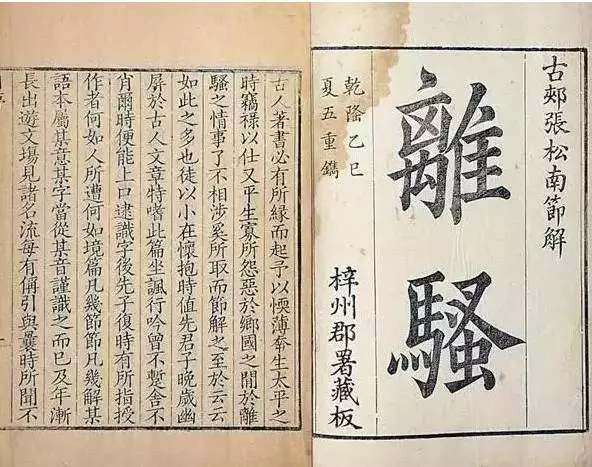 古郟張松南節解
離騷
乾隆乙巳
夏五重鐫
梓州郡署藏板
古人著書必有所緣而起予以愞薄奔生太平之
時竊祿以仕又平生寡所怨惡於鄉國之閒於離
騷之情事了不相涉奚所取而節解之至於云云
如此之多也徒以小在懷抱時值先君子晚歲幽
屏於古人文章特嗜此篇坐諷行吟曾不蹔舍不
肖爾時便能上口逮識字後先子復時有所指授
作者何如人所遭何如境篇凡幾節節凡幾解某
語本屬某意某字當從某音謹識之而已及年漸
長出遊文場見諸名流每有偁引與曩時所聞不